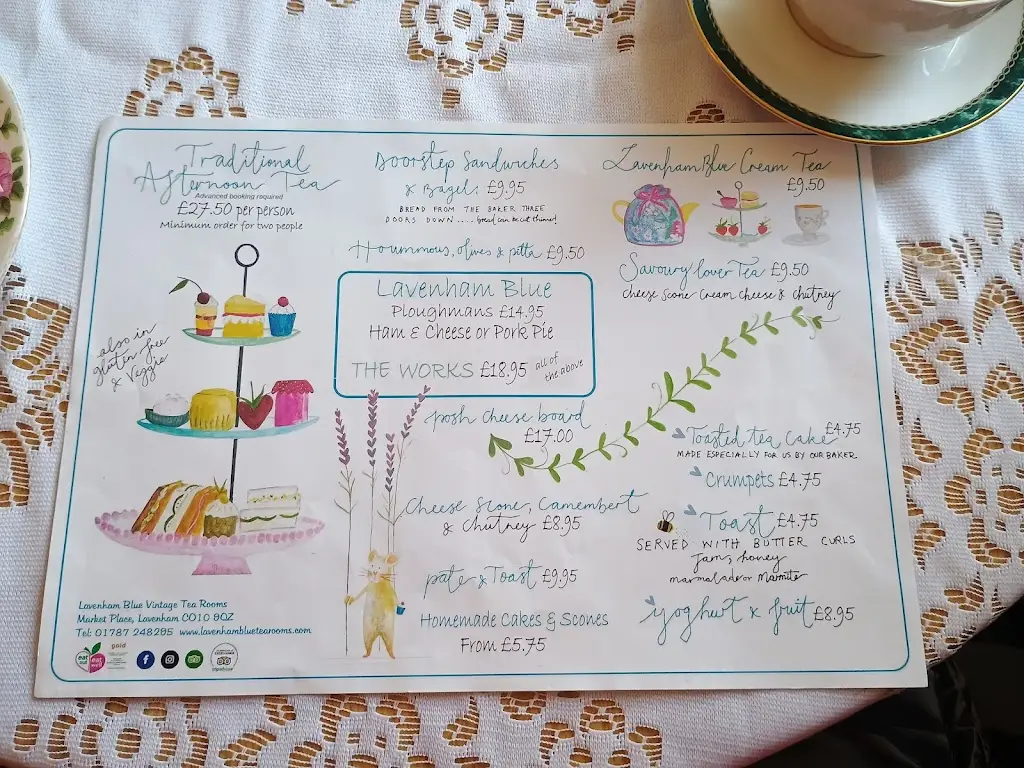 Traditional
Afternoon Tea
Advanced booking required
£27.50 per person
Minimum order for two people
also in
gluten free
& Veggie
Lavenham Blue Vintage Tea Rooms
Market Place, Lavenham CO10 9QZ
Tel: 01787 248295 www.lavenhambluetearooms.com
eat out eat well
gold
tripadvisor
Doorstep Sandwiches
& Bagels £9.95
BREAD FROM THE BAKER THREE
DOORS DOWN.... bread can be cut thinner!
Hoummous, olives & pitta £9.50
Lavenham Blue
Ploughmans £14.95
Ham & Cheese or Pork Pie
THE WORKS £18.95 all of
the above
posh cheese board
£17.00
Cheese Scone, Camembert
& Chutney £8.95
pate & Toast £9.95
Homemade Cakes & Scones
From £5.75
Lavenham Blue Cream Tea
£9.50
Savoury lover Tea £9.50
cheese Scone Cream Cheese & Chutney
Toasted tea Cake £4.75
MADE ESPECIALLY FOR US BY OUR BAKER
Crumpets £4.75
Toast £4.75
SERVED WITH BUTTER CURLS
Jam, honey
marmalade or Marmite
yoghurt & fruit £8.95